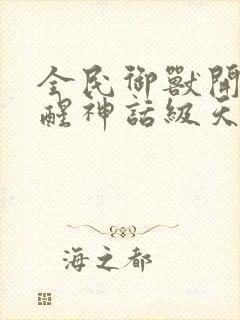 全民御獸開
醒神話級天
海之都